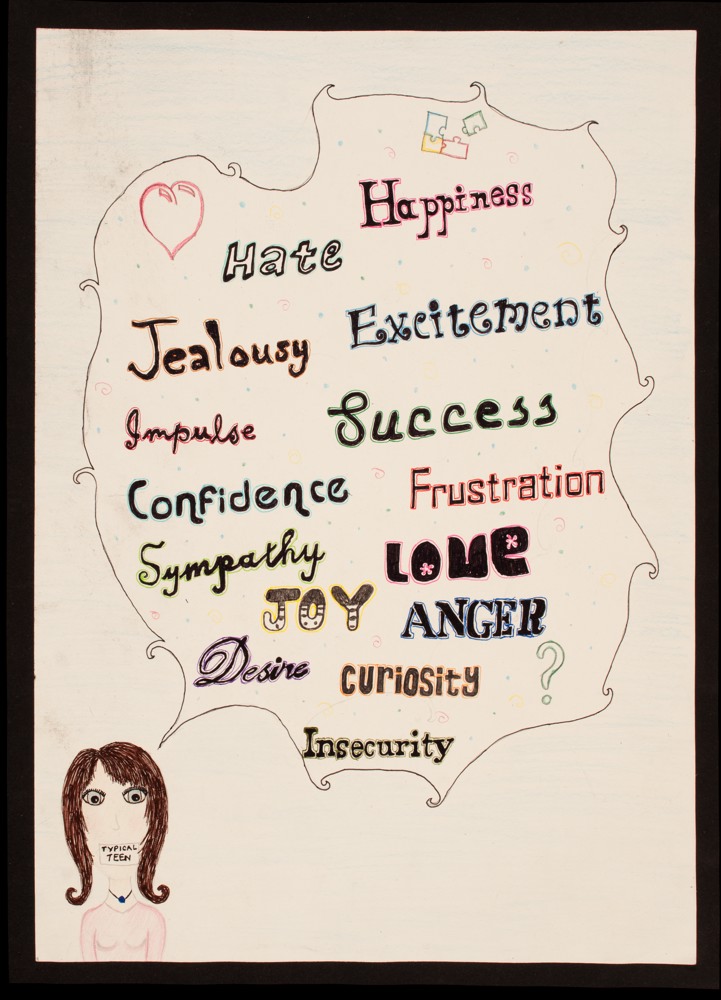 Happiness
Hate
Excitement
Jealousy
Success
Impulse
Frustration
Confidence
Sympathy
LOVE
JOY
ANGER
Desire
curiosity
?
Insecurity
TYPICAL
TEEN